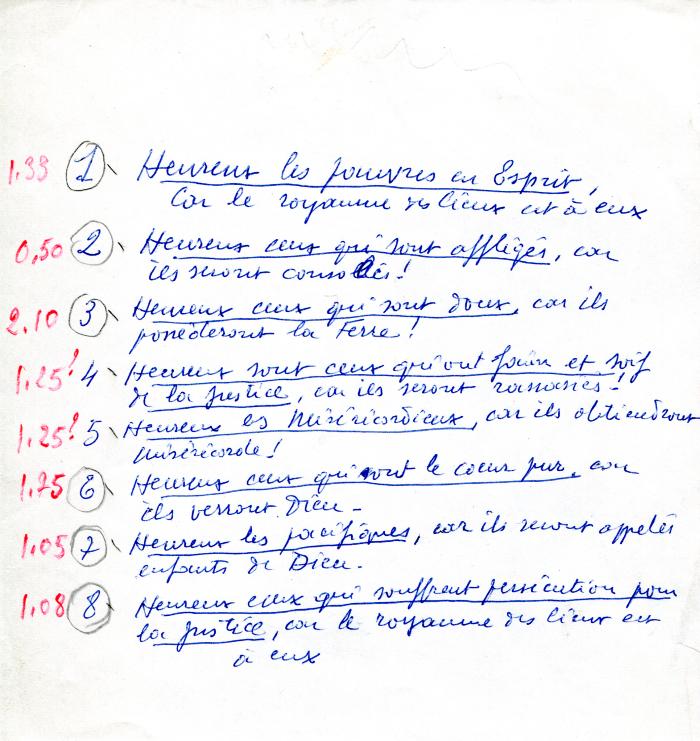 1.33 1 Heureux les pauvres en Esprit,
Car le royaume des Cieux est à eux
0,50 2 Heureux ceux qui sont affligés, car
ils seront consolés!
2.10 3 Heureux ceux qui sont doux, car ils
possèderont la Terre!
1.25! 4 Heureux sont ceux qui ont faim et soif
de la justice, car ils seront rassasiés!
1.25! 5 Heureux les Miséricordieux, car ils obtiendront
miséricorde!
1.75 6 Heureux ceux qui ont le coeur pur, car
ils verront Dieu.
1.05 7 Heureux les pacifiques, car ils seront appelés
enfants de Dieu.
1.08 8 Heureux ceux qui souffrent persécution pour
la justice, car le royaume des Cieux est
à eux